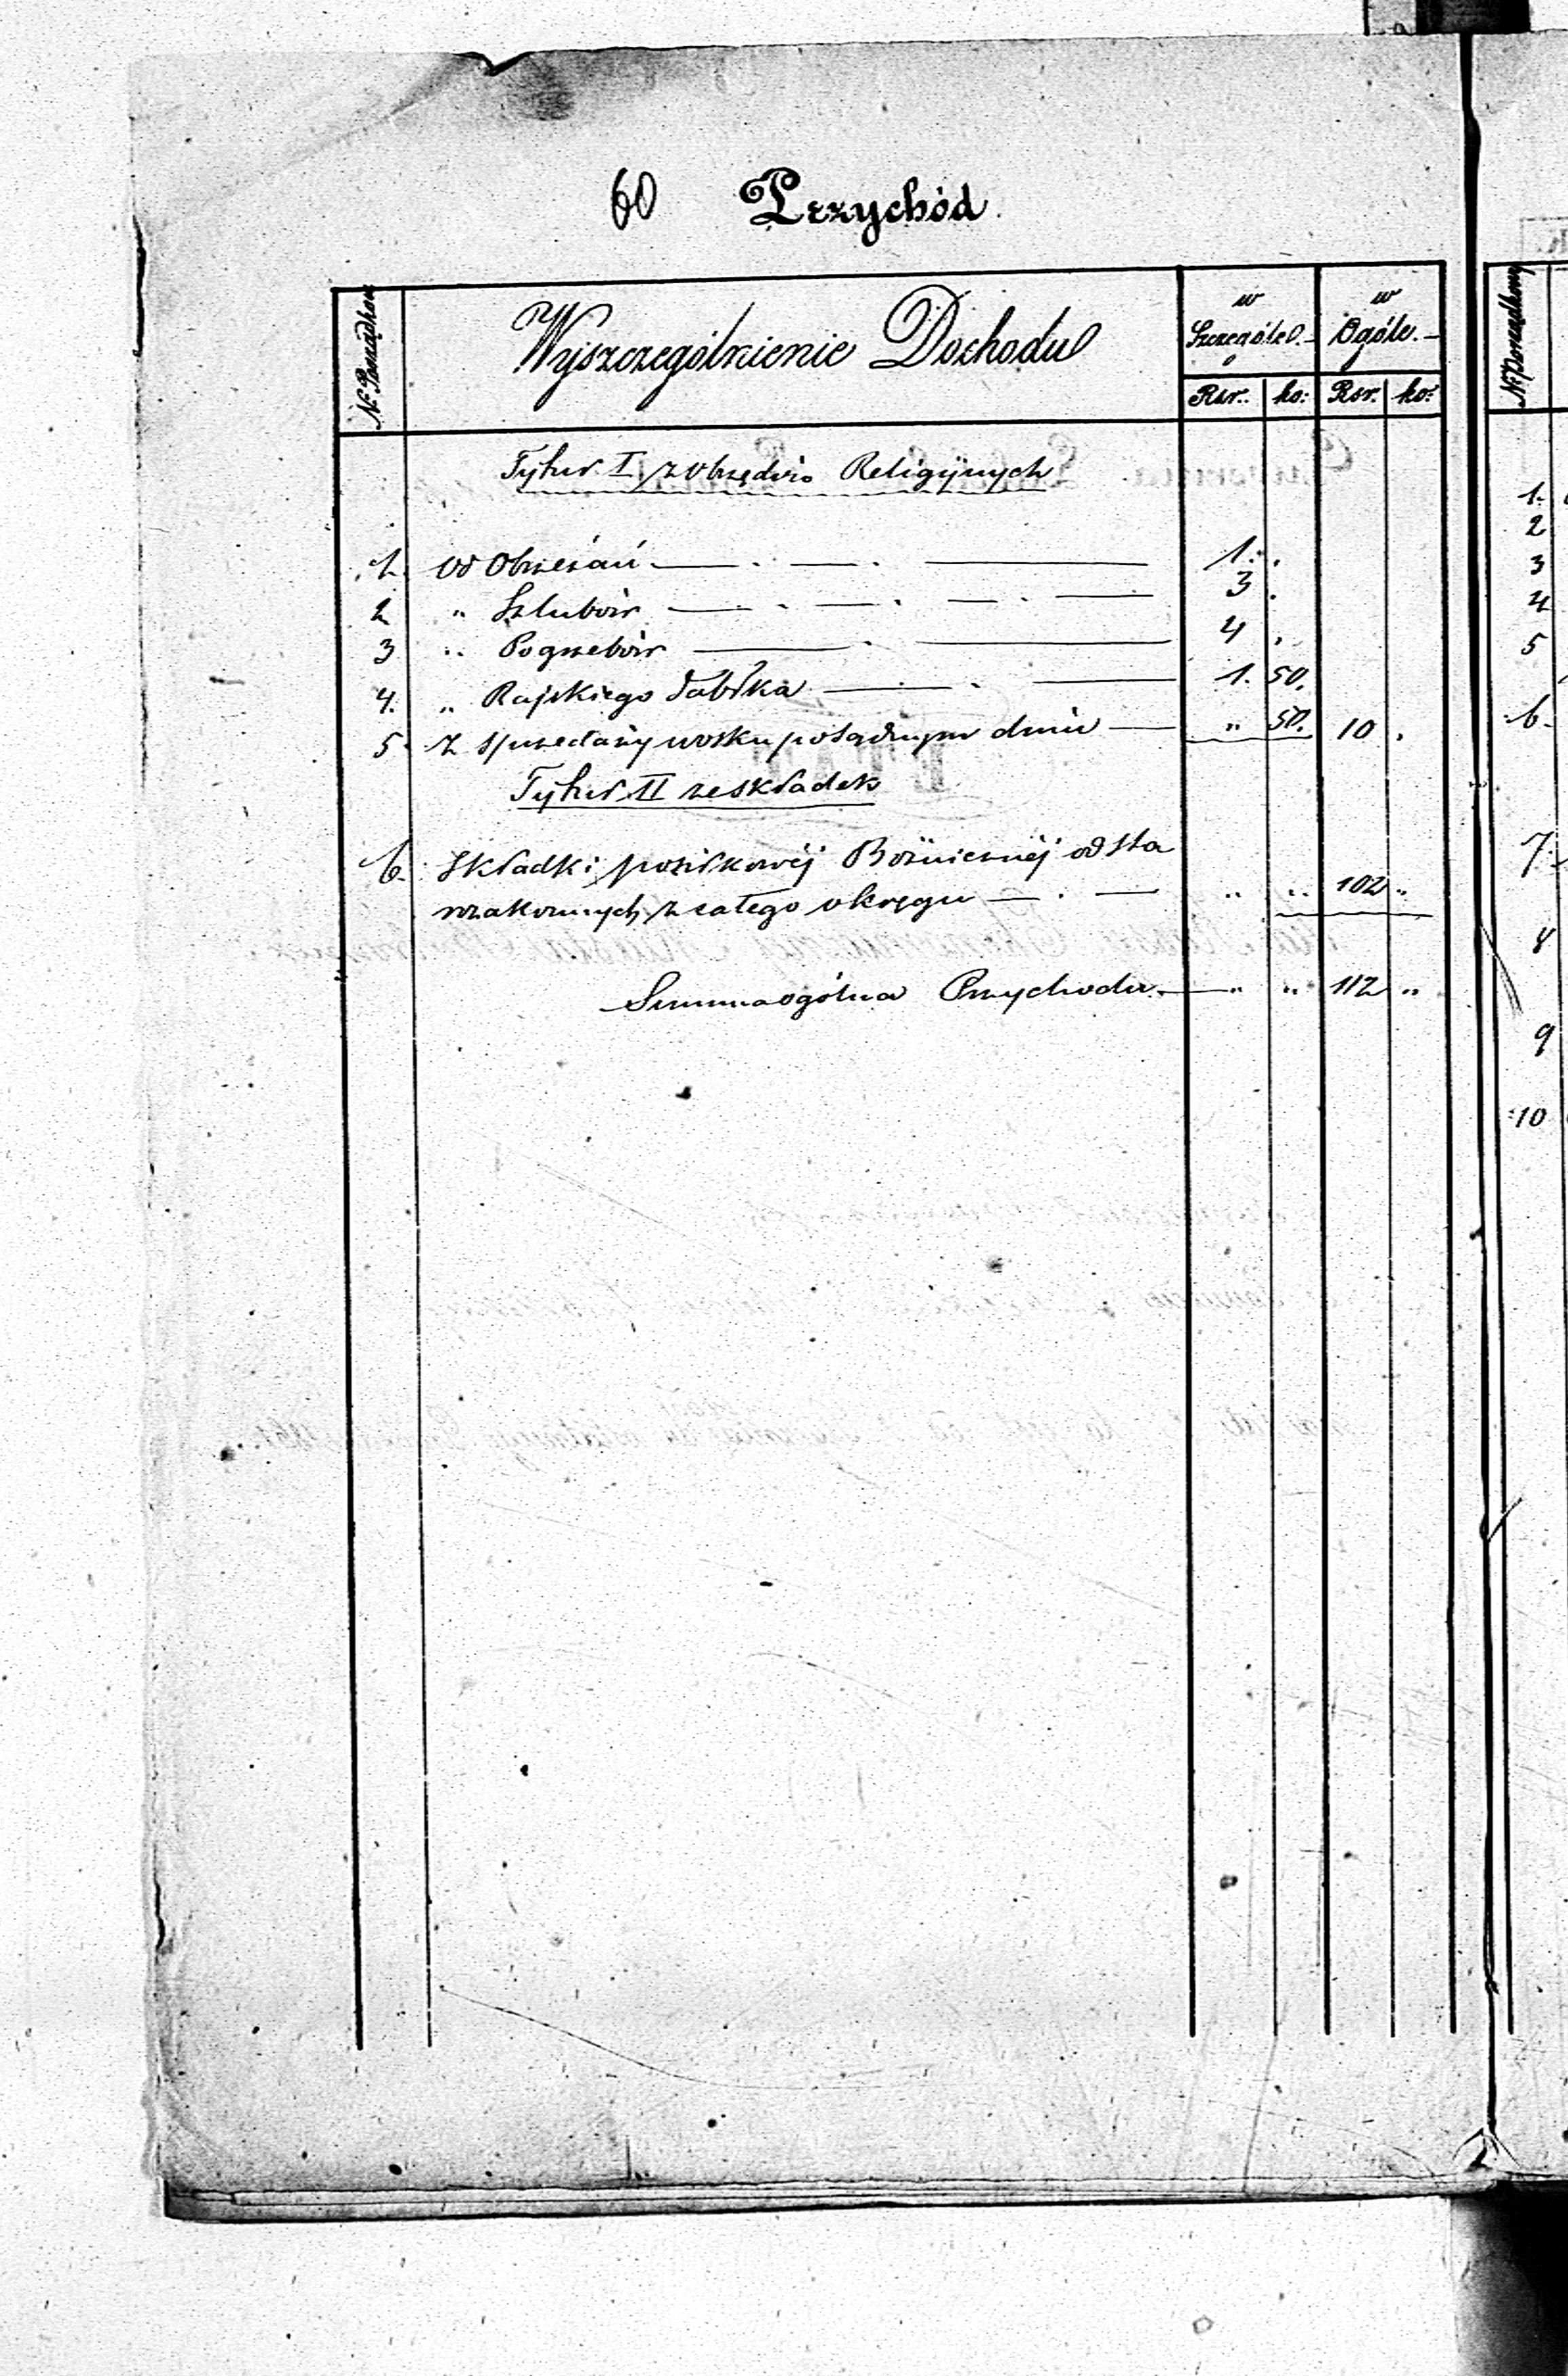 60 Przychód.
Nr Porządkow
Wyszczególnienie Dochodu
w Szczególe
w Ogóle.
Rsr. ko: Rsr. ko:
Tytuł I z obrzędów Religijnych
1. Od Obrzezań 1. .
2 " Szlubów 3 .
3 " Pogrzebów 4 .
4. " Rajskiego Jabłka 1. 50.
5 Z sprzedaży wosku po sądnym dniu " 50. 10 .
Tytuł II ze składek
6. Składki posiłkowéj Bożnicznéj od sta
rozakonnych z całego okręgu " " 102 "
Summa ogólna Przychodu " " 112 "
Nr Porządkowy
1.
2
3
4
5
6.
7.
8
9
10